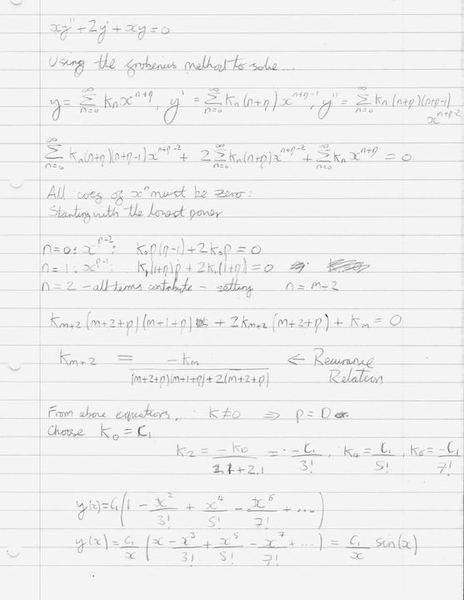 xy'' + 2y' + xy = 0
Using the frobenius method to solve...
y = ∑_{n=0}^{∞} k_n x^{n+p}, y' = ∑_{n=0}^{∞} k_n (n+p) x^{n+p-1}, y'' = ∑_{n=0}^{∞} k_n (n+p)(n+p-1) x^{n+p-2}
∑_{n=0}^{∞} k_n (n+p)(n+p-1) x^{n+p-2} + 2∑_{n=0}^{∞} k_n (n+p) x^{n+p-2} + ∑_{n=0}^{∞} k_n x^{n+p} = 0
All coeg of x^n must be zero:
Starting with the lowest power
n=0: x^{p-2}: k_0 p(p-1) + 2k_0 p = 0
n=1: x^{p-1}: k_1(1+p)p + 2k_1(1+p) = 0
n=2 - all terms contribute - setting n = m-2
k_{m+2} (m+2+p)(m+1+p) + 2k_{m+2} (m+2+p) + k_m = 0
k_{m+2} = -k_m / ((m+2+p)(m+1+p) + 2(m+2+p)) ← Recurance
Relation
From above equations, k≠0 ⇒ p = 0 or
Choose k_0 = C_1
k_2 = -k_0 / (2.1 + 2.1) = -C_1/3!, k_4 = C_1/5!, k_6 = -C_1/7!
y(x) = C_1 (1 - x^2/3! + x^4/5! - x^6/7! + ...)
y(x) = C_1/x (x - x^3/3! + x^5/5! - x^7/7! + ...) = C_1/x sin(x)